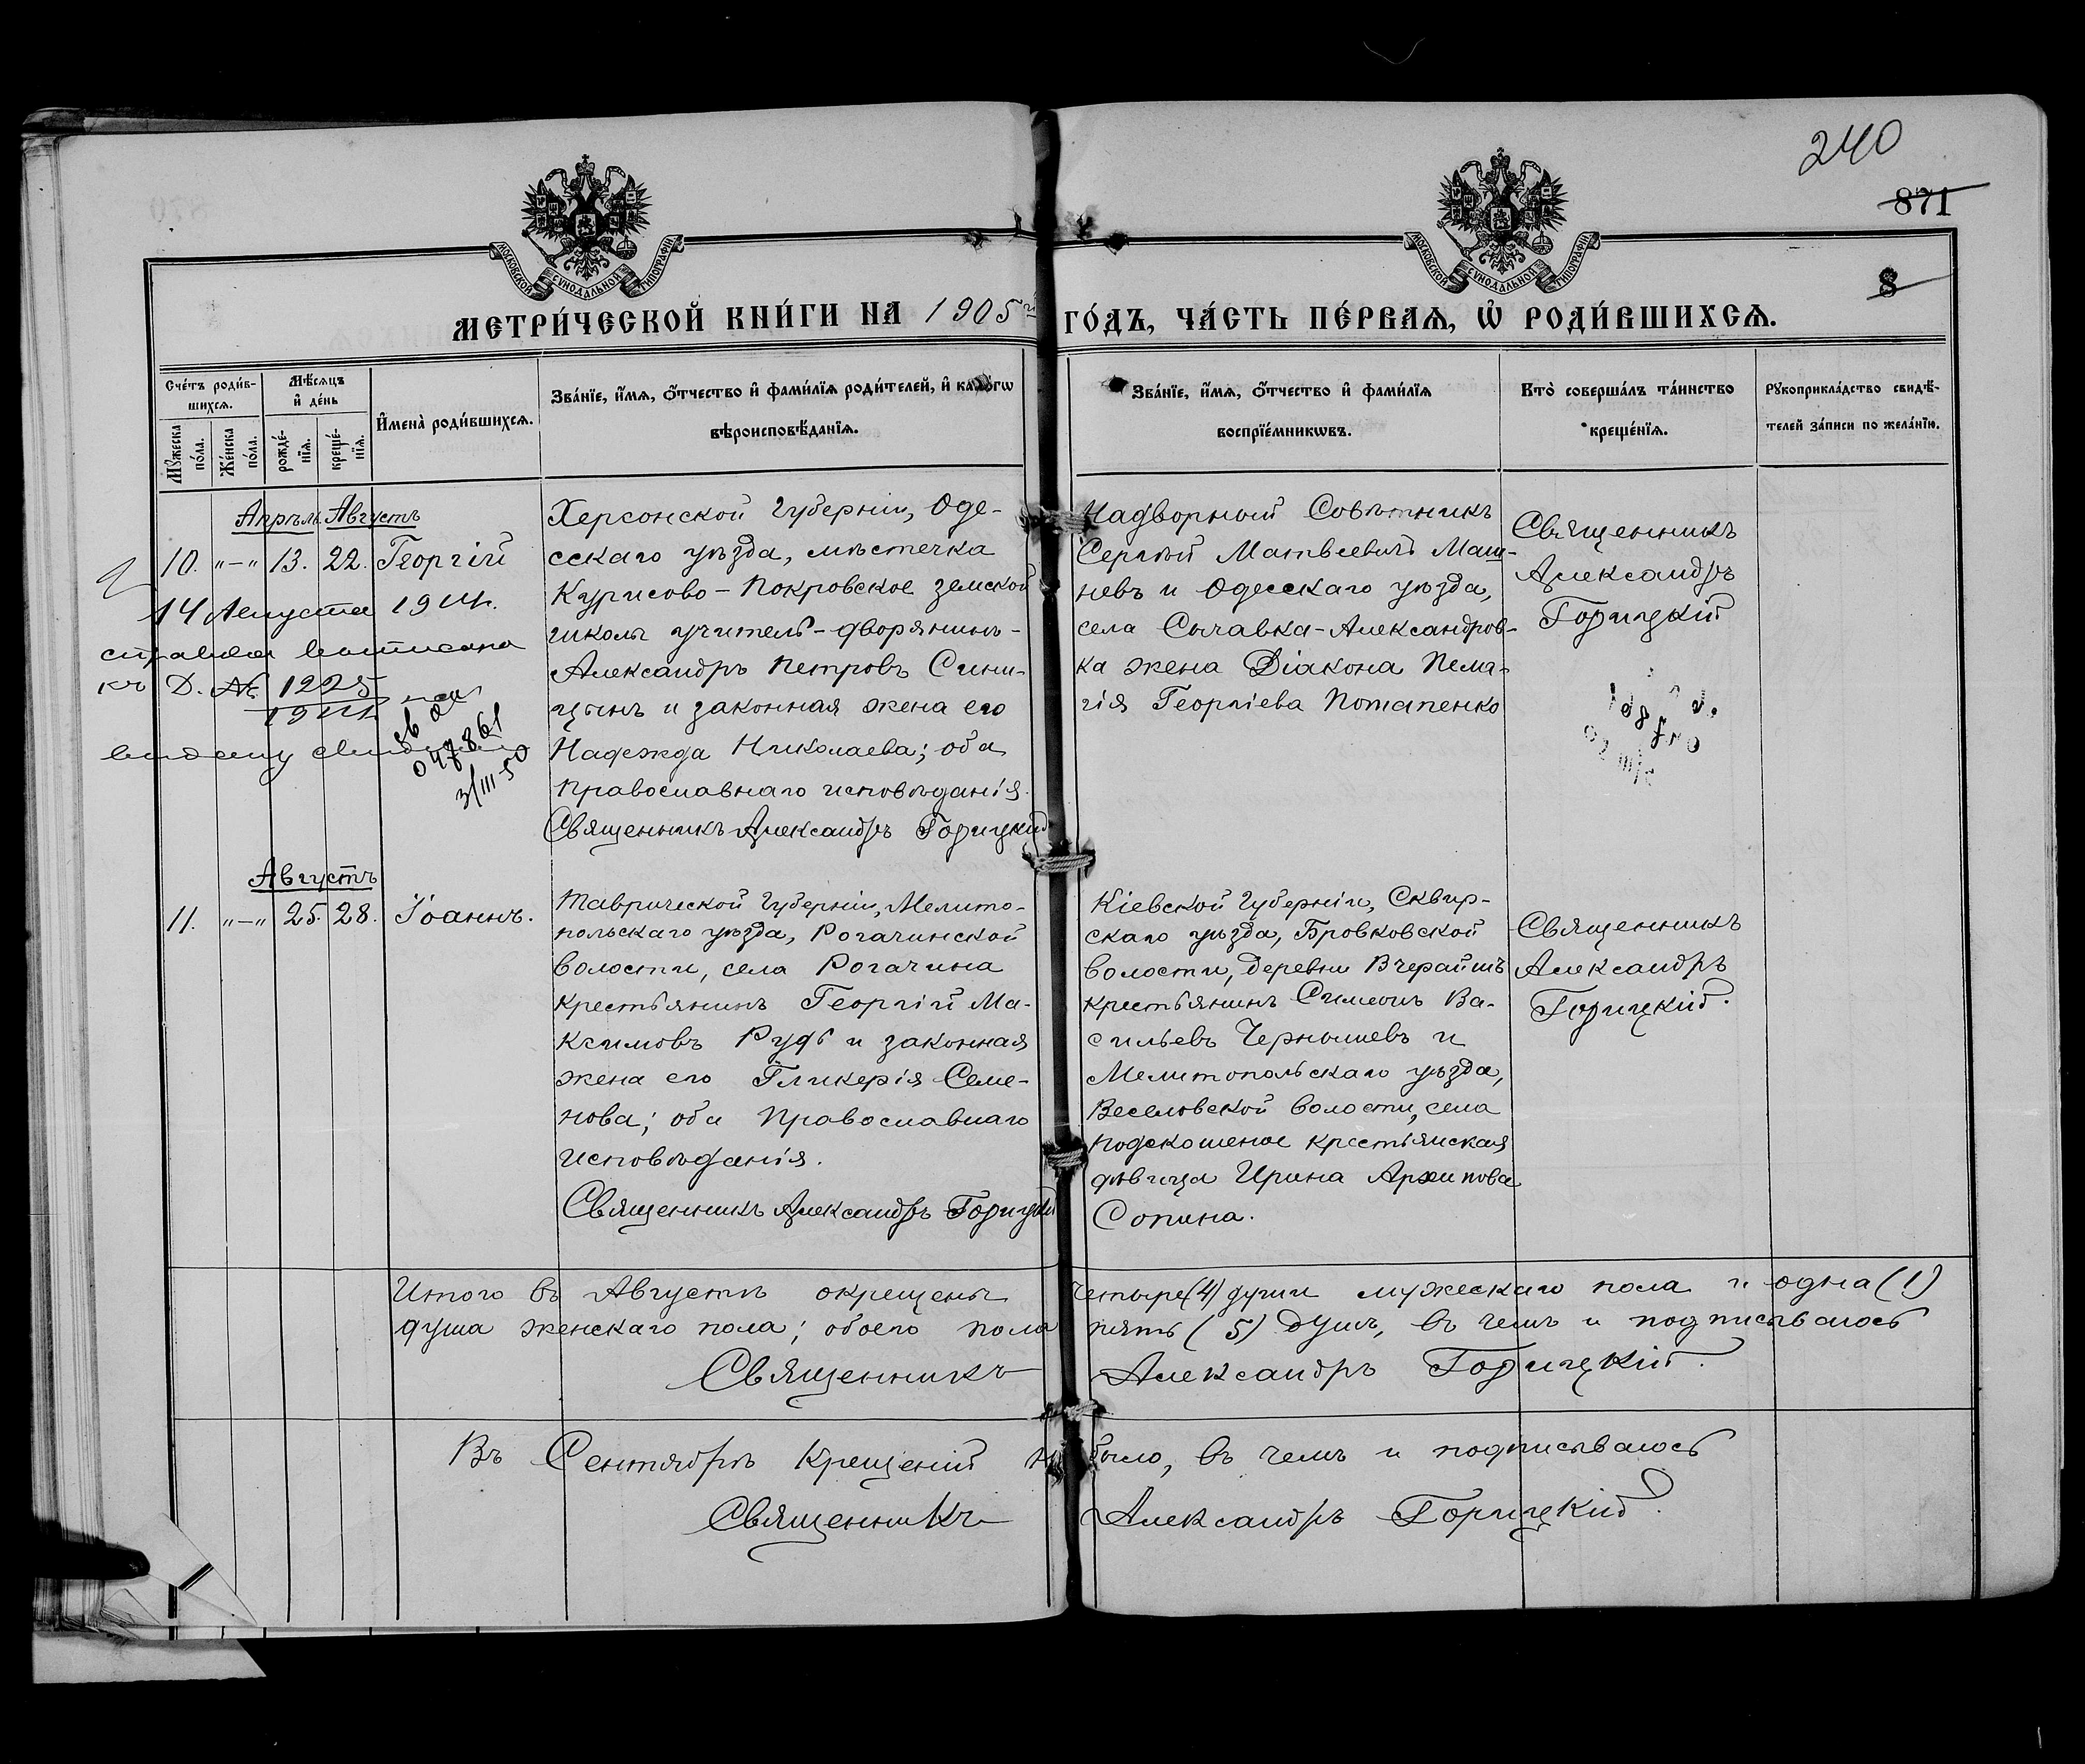 240
871
8
МОСКОВСКОЙ СѴНОДАЛЬНОЙ ТИПОГРАФІИ
МОСКОВСКОЙ СѴНОДАЛЬНОЙ ТИПОГРАФІИ
МЕТРИ́ЧЕСКОЙ КНИ́ГИ НА 1905 й ГО́ДЪ, ЧА́СТЬ ПЕ́РВАѦ, Ѡ҆ РОДИ́ВШИХСѦ.
Сче́тъ роди́в-
шихсѧ.
Мѣ́сѧцъ
и҆ де́нь
Мꙋ́жеска
по́ла.
Же́нска
по́ла.
рожде́-
нїѧ.
креще́-
нїѧ.
И҆мена̀ роди́вшихсѧ.
Зва́нїе, и҆́мѧ, ѻ҆́тчество и҆ фами́лїѧ роди́телей, и҆ како́гѡ
вѣроисповѣ́данїѧ.
Зва́нїе, и҆́мѧ, ѻ҆́тчество и҆ фами́лїѧ
воспрїе́мникѡвъ.
Кто̀ соверша́лъ та́инство
креще́нїѧ.
Рꙋкоприкла́дство свидѣ́-
телей за́писи по жела́нїю.
Апрѣль. Августъ
10. „—„ 13. 22. Георгій
14 Августа 1914 г.
справка выписана
къ Д. № 1225
1914
047861
3/III-50
Херсонской Губерніи, Оде-
сскаго уѣзда, мѣстечка
Курисово-Покровское земской
школы учитель-дворянинъ-
Александръ Петровъ Сини-
цынъ и законная жена его
Надежда Николаева; оба
Православнаго исповѣданія.
Священникъ Александръ Горицкій
Надворный Совѣтникъ
Сергѣй Матвѣевичъ Маш-
невъ и Одесскаго уѣзда,
села Сычавка-Александров-
ка жена Діакона Пела-
гія Георгіева Потапенко
Священникъ
Александръ
Горицкій
Августъ
11. „—„ 25. 28. Іоаннъ.
Таврической Губерніи, Мелито-
польскаго уѣзда, Рогачинской
волости, села Рогачина
крестьянинъ Георгій Ма-
ксимовъ Рудь и законная
жена его Гликерія Семе-
нова; оба Православнаго
исповѣданія.
Священникъ Александръ Горицкій
Кіевской Губерніи, Сквир-
скаго уѣзда, Бровковской
волости, деревни Вчерайшъ
крестьянинъ Симеонъ Ва-
сильевъ Чернышевъ и
Мелитопольскаго уѣзда,
Веселовской волости, села
Подскошеное крестьянская
дѣвица Ирина Архипова
Сопина.
Священникъ
Александръ
Горицкій.
Итого въ Августѣ окрещены четыре (4) души мужескаго пола и одна (1)
душа женскаго пола; обоего пола пять (5) душъ, въ чемъ и подписываюсь
Священникъ Александръ Горицкій.
Въ Сентябрѣ Крещеній не было, въ чемъ и подписываюсь
Священникъ Александръ Горицкій.